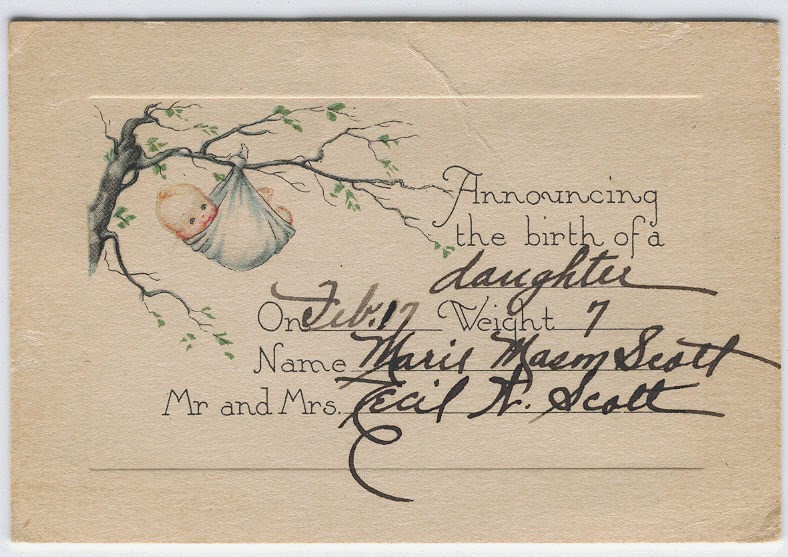 Announcing
the birth of a
daughter
On Feb. 17 Weight 7
Name Marie Mason Scott
Mr and Mrs. Cecil N. Scott